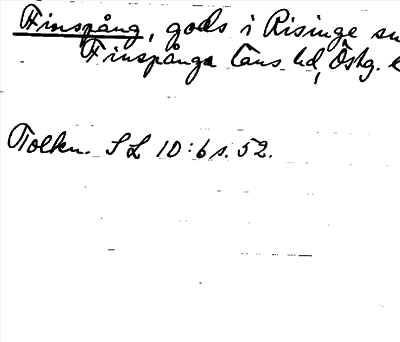 Finspång, gods i Risinge sn
Finspånga läns hd, Östg.
Tolkn. SL 10:6 s. 52.